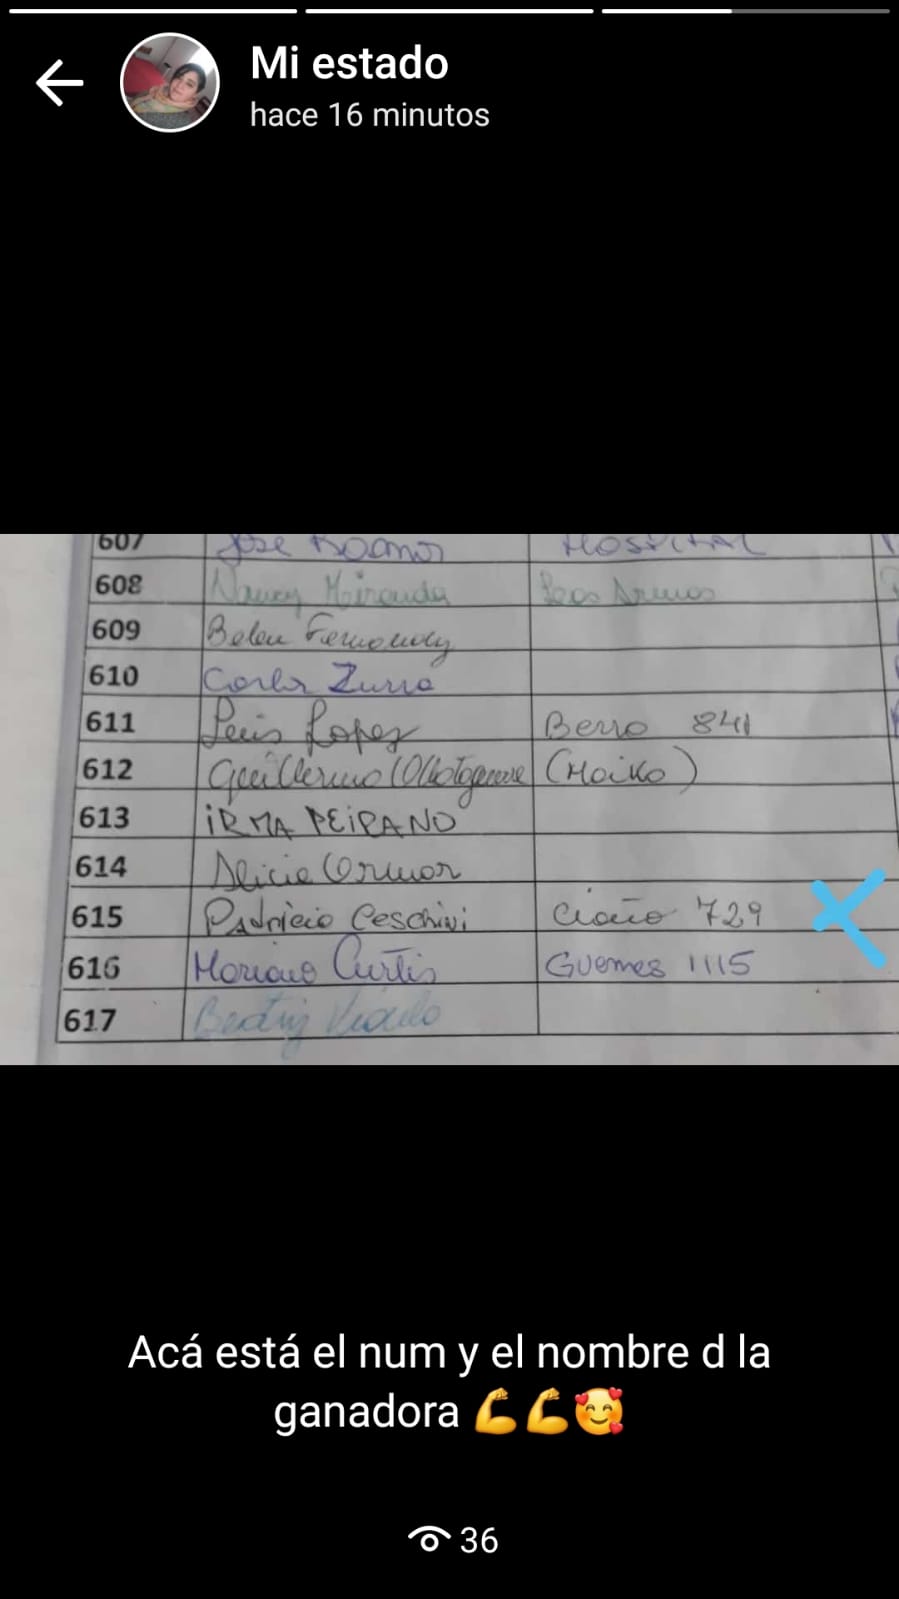 Mi estado
hace 16 minutos
607 Jose Ramos HOSPITAL
608 Nancy Miranda
609 Belen
610 Carla Zurra
611 Luis Lopez Berro 841
612 Guillermo
613 iRMA PEiRANO
614 Alicia
615 Patricia Ceschini 729
616 Mariano Curtis Guemes 1115
617 Beatriz
Acá está el num y el nombre d la
ganadora 💪💪🥰
36